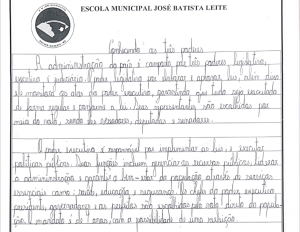 ESCOLA MUNICIPAL JOSÉ BATISTA LEITE
Conhecendo os três poderes
A administração do país é composta pelos três poderes legislativo,
executivo e judiciário. O poder legislativo por elaborar e aprovar leis, além disso
do poder executivo, garantindo que tudo seja executado
de forma e as leis. Seus representantes são escolhidos por
meio do voto, sendo eles vereadores, deputados e senadores.
O poder executivo é responsável por implementar as leis, e executar
políticas públicas. Suas funções incluem gerenciar os recursos públicos, liderar
a administração e garantir o bem-estar da população através de serviços
essenciais como: saúde, educação e segurança. Os chefes do poder executivo
presidente, governadores e os prefeitos são escolhidos por voto direto da popula-
ção. O mandato é de 4 anos, com a possibilidade de uma reeleição.